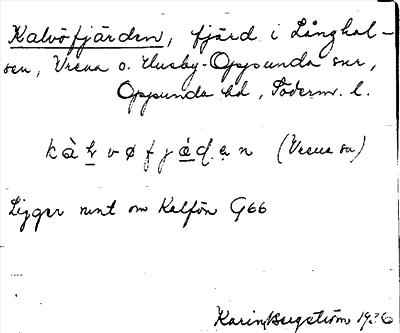 Kalvöfjärden, fjärd i Långhal-
sen, Vrena o. Husby-Oppunda snr,
Oppunda hd, Söderm. l.
kàḻvøfjáḍẹn (Vrena sn)
Ligger runt om Kalfön G66
Karin Bergström 1936